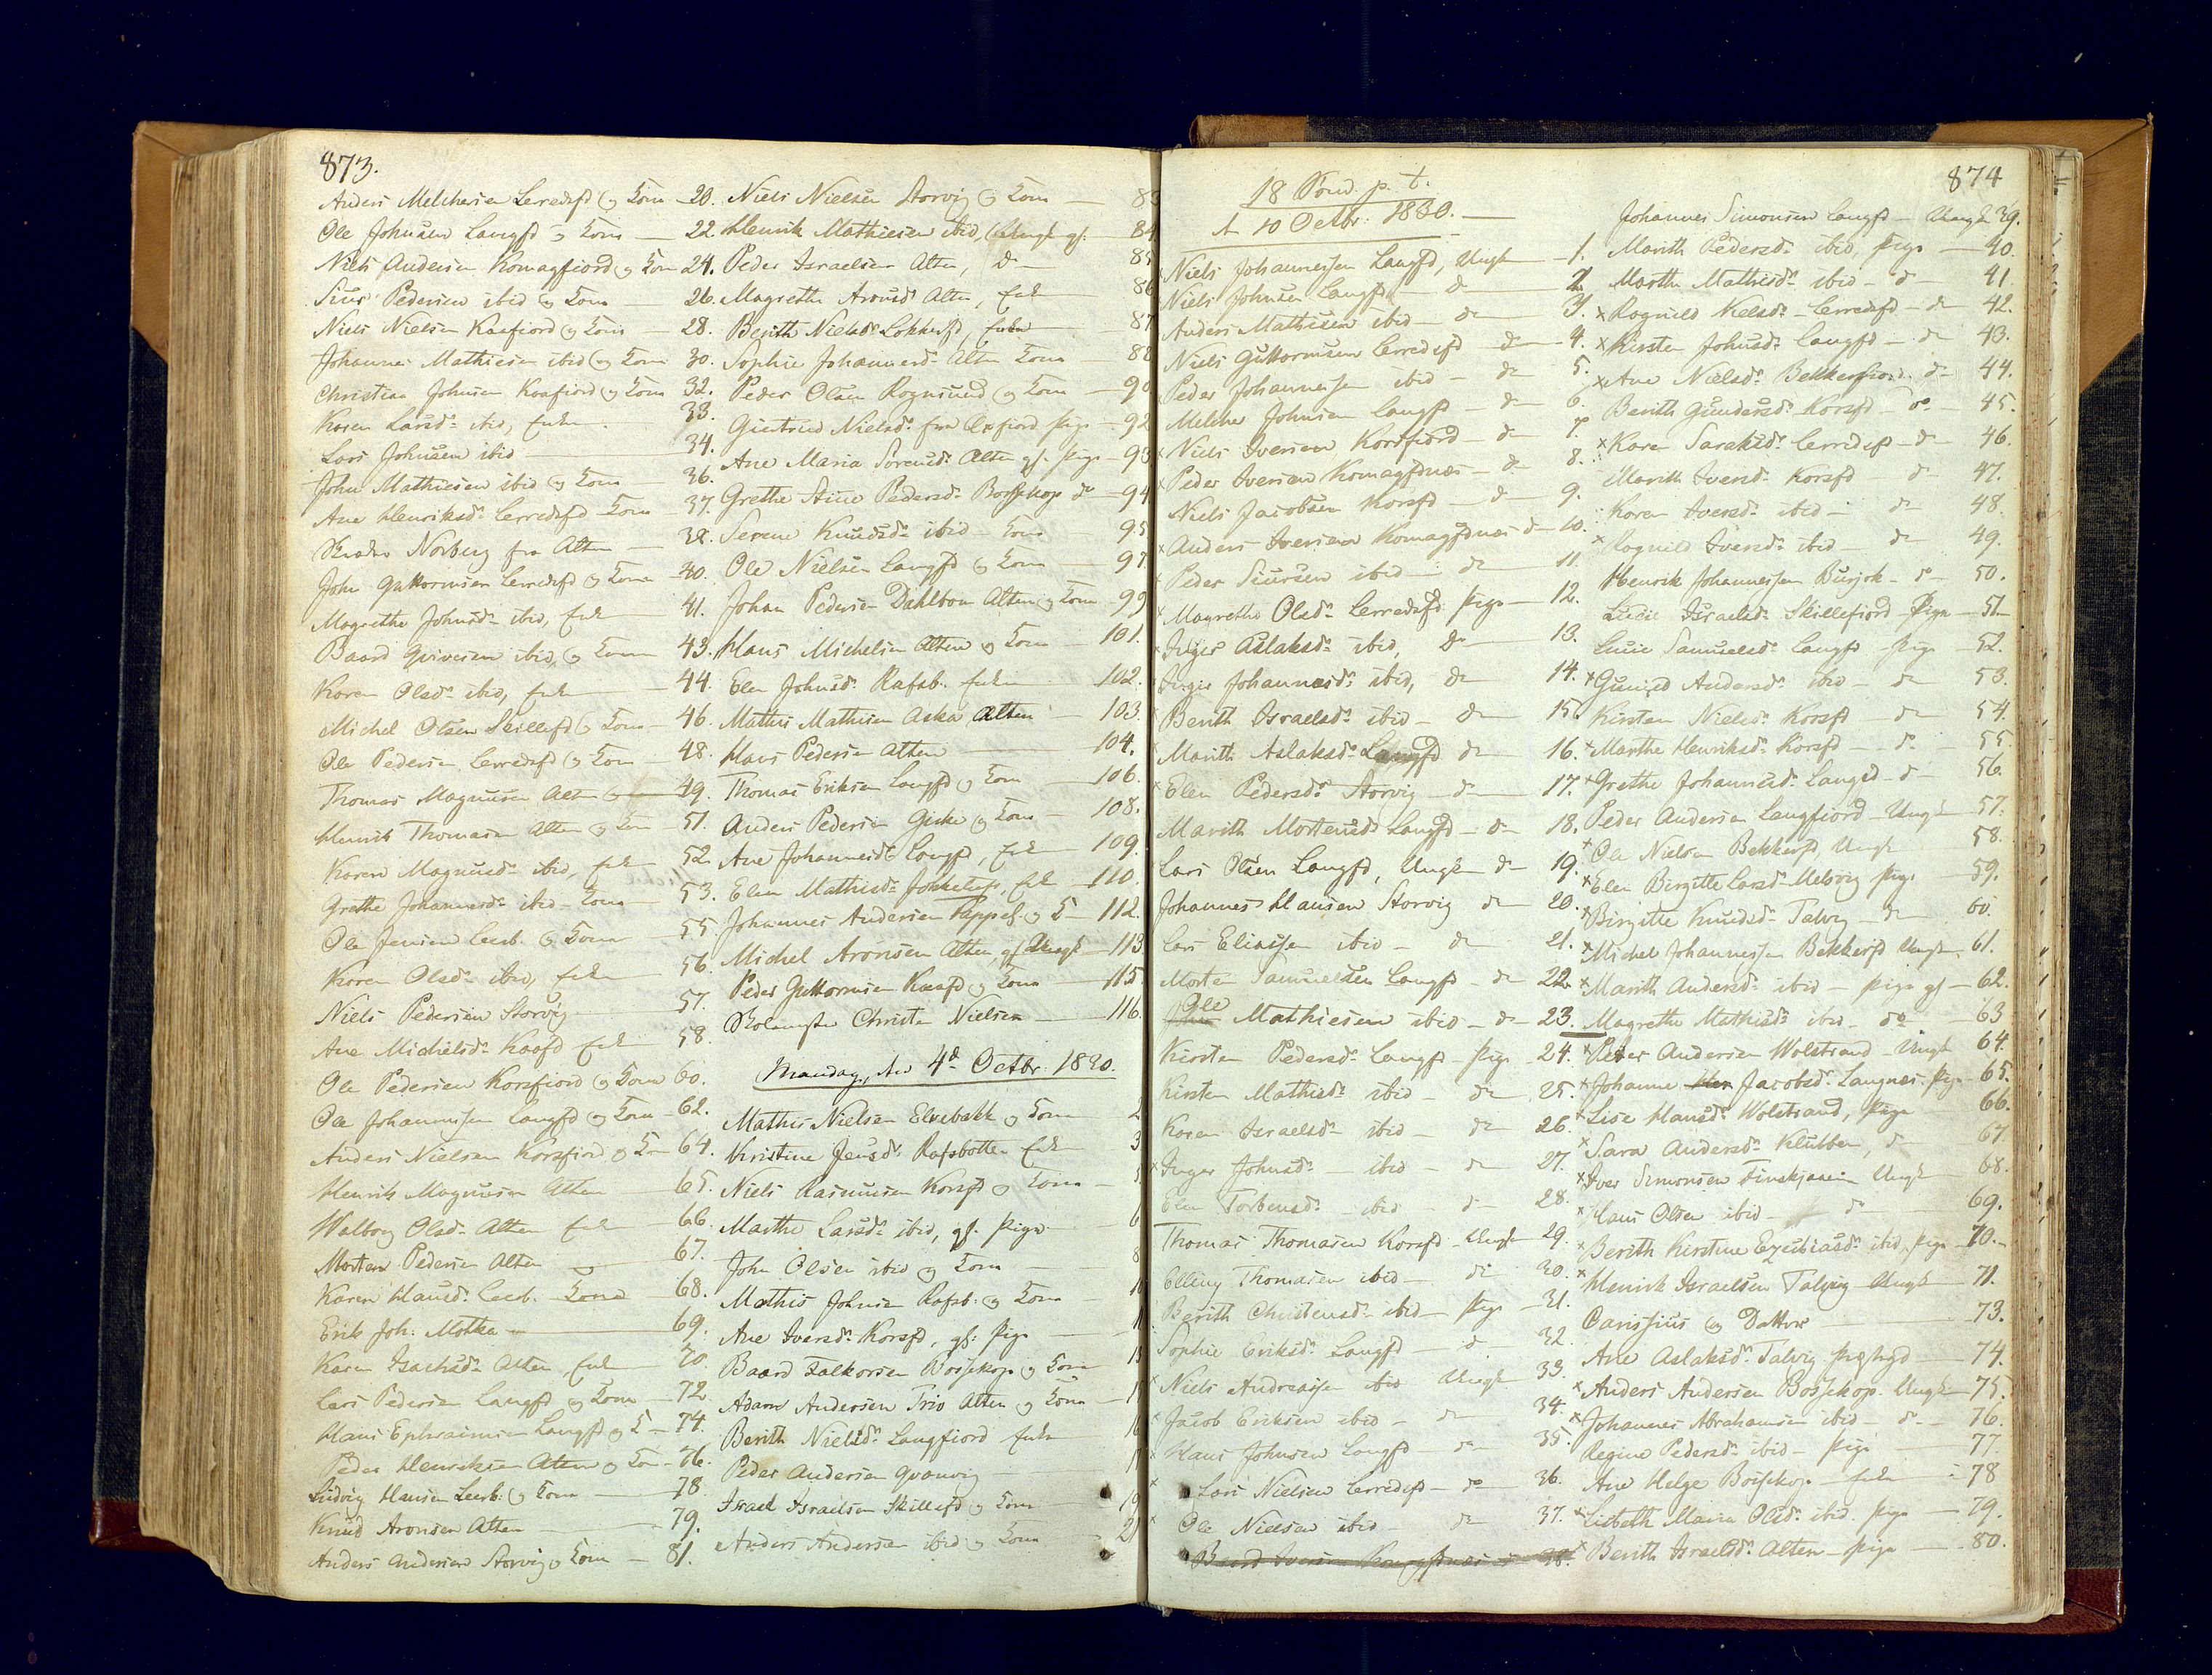 873.
Anders Melchersen Lerredsfd og Kona 20.
Ole Johnsen Langfd og Kona 22.
Niels Andersen Komagfiord og Kon 24.
Siur Pedersen ibid og Kona 26.
Niels Nielsen Kaafiord og Kona 28.
Johannes Mathiesen ibid og Kona 30.
Christian Johnsen Kaafiord og Kona 32.
Karen Larsdr ibid, Enke 33.
Lars Johnsen ibid 34.
John Mathiesen ibid og Kona 36.
Ane Henriksdr Lerredsfd Kona 37.
Norberg fra Alten 38.
John Guttormsen Lerredsfd og Kona 40.
Magrethe Johnsdr ibid, Enke 41.
Baard ibid, og Kona 43.
Karen Olsdr ibid, Enke 44.
Michel Olsen Skillefd og Kona 46.
Ole Pedersen Lerredsfd og Kona 48.
Thomas Magnusen Alten 49.
Henrik Thomasen Alten og Kon 51.
Karen Magnusdr ibid, Enke 52.
Grethe Johannesdr ibid Kona 53.
Ole Jensen Leerb. og Kona 55.
Karen Olsdr ibid, Enke 56.
Niels Pedersen Storvig 57.
Ane Michelsdr Kaafd Enke 58.
Ole Pedersen Korsfiord og Kona 60.
Ole Johannesen Langfd og Kona 62.
Anders Nielsen Korsfiord og Kon 64.
Henrik Magnusen Alten 65.
Walborg Olsdr Alten Enke 66.
Morten Pedersen Alten 67.
Karen Hansdr Leerb. Kona 68.
Erik Joh. Motka 69.
Karen Isachsdr Alten Enke 70.
Lars Pedersen Langfd og Kona 72.
Hans Ephraimsen Langfd og K 74.
Peder Henriksen Alten og Kon 76.
Ludvig Hansen Leerb. og Kona 78.
Knud Aronsen Alten 79.
Anders Andersen Storvig og Kona 81.
Niels Nielsen Storvig og Kona 83
Henrik Mathiesen ibid, Ungk. gf. 84
Peder Israelsen Alten, do 85
Magrethe Aronsdr Alten, Enke 86
Berith Nielsdr Enke 87
Sophie Johannesdr Alten Kona 88
Peder Olsen Rognsund og Kona 90
Giertrud Nielsdr fra Øxfiord Pige 92
Ane Maria Sørensdr Alten gf. Pige 93
Grethe Stine Pedersdr Bossekop do 94
Serene Knudsdr ibid Kona 95
Ole Nielsen Langfd og Kona 97
Johan Pedersen Dahlbom Alten og Kona 99
Hans Michelsen Alten og Kona 101.
Elen Johnsdr Rafsb. Enke 102.
Mathis Mathisen Aska Alten 103.
Hans Pedersen Alten 104.
Thomas Eriksen Langfd og Kon 106.
Anders Pedersen og Kona 108.
Ane Johannesdr Langfd, Enke 109.
Elen Mathisdr Enke 110.
Johannes Andersen og K 112.
Michel Aronsen Alten, gf. Ungk 113
Peder Guttormsen Kaafd og Kona 115
Christen Nielsen 116.
Mandag, den 4de Octbr. 1830.
Mathis Nielsen Elvebakk og Kona 2
Kristine Jensdr Rafsbotten Enke 3
Niels Rasmusen Korsfd og Kona 5
Marthe Larsdr ibid, gf. Pige 6
John Olsen ibid og Kona 8
Mathis Johnsen Rafsb. og Kona 10
Ane Iversdr Korsfd, gf. Pige 11
Baard Falkorsen Bossekop og Kona 13
Adam Andersen Trio Alten og Kona 15
Berith Nielsdr Langfiord Enke 16
Peder Andersen Qvænvig 17
Israel Israelsen Skillefd og Kona 19
Anders Andersen ibid og Kona 21
874
18 Sønd. p. t.
d. 10 Octbr. 1830.
Niels Johannessen Langfd, Ungk 1.
Niels Johnsen Langfd do 2.
Anders Mathisen ibid do 3.
Niels Guttormsen Lerredsfd do 4.
Peder Johannessen ibid do 5.
Melcher Johnsen Langfd do 6.
Niels Iversen Korsfiord do 7.
Peder Iversen Komagfdnæs do 8.
Niels Jacobsen Korsfd do 9.
Anders Iversen Komagfdnæs do 10.
Peder Siursen ibid do 11.
Magrethe Olsdr Lerredsfd Pige 12.
Inger Aslaksdr ibid, do 13.
Inger Johannesdr ibid, do 14.
Berith Israelsdr ibid do 15.
Marith Aslaksdr Langfd do 16.
Elen Pedersdr Storvig do 17.
Marith Mortensdr Langfd do 18.
Lars Olsen Langfd, Ungk do 19.
Johannes Hansen Storvig do 20.
Lars Eliassen ibid do 21.
Morten Samuelsen Langfd do 22.
Ole Mathiesen ibid do 23.
Kirsten Pedersdr Langfd Pige 24.
Kirsten Mathisdr ibid do 25.
Karen Israelsdr ibid do 26.
Inger Johnsdr ibid do 27.
Elen Torbensdr ibid do 28.
Thomas Thomasen Korsfd Ungk 29.
Elling Thomasen ibid do 30.
Berith Christensdr ibid Pige 31.
Sophie Eriksdr Langfd do 32.
Niels Andreassen ibid Ungk 33.
Jacob Eriksen ibid do 34.
Hans Johnsen Langfd do 35.
Lars Nielsen Lerredsfd do 36.
Ole Nielsen ibid do 37.
Baard Iversen Komagfdnæs do 38.
Johannes Simonsen Langfd Ungk 39.
Marith Pedersdr ibid, Pige 40.
Marthe Mathisdr ibid do 41.
Rognild Nielsdr Lerredsfd do 42.
Kirsten Johnsdr Langfd do 43.
Ane Nielsdr Bekkerfiord do 44.
Berith Gundersdr Korsfd do 45.
Karen Saraksdr Lerredsfd do 46.
Marith Iversdr Korsfd do 47.
Karen Iversdr ibid do 48.
Rognild Iversdr ibid do 49.
Henrik Johannessen Burjok do 50.
Lucie Israelsdr Skillefiord Pige 51
Lucie Samuelsdr Langfd Pige 52.
Gunild Andersdr ibid do 53.
Kirsten Nielsdr Korsfd do 54.
Marthe Henriksdr Korsfd do 55.
Grethe Johannesdr Langfd do 56.
Peder Andersen Langfiord Ungk 57.
Ole Nielsen Bekkerfd, Ungk 58.
Elen Birgitte Larsdr Melsvig Pige 59.
Birgitte Knudsdr Talvig do 60.
Michel Johannessen Bekkerfd Ungk 61.
Marith Andersdr ibid Pige gf 62.
Magrethe Mathisdr ibid do 63
Peter Andersen Wolstrand Ungk 64.
Johanne Jacobsdr Langnæs Pige 65.
Lise Hansdr Wolstrand, Pige 66.
Sara Andersdr Klubben, do 67.
Iver Simonsen Ungk 68.
Hans Olsen ibid do 69.
Berith Kirstine ibid Pige 70.
Henrik Israelsen Talvig Ungk 71.
Carissius og Datter 73.
Ane Aslaksdr Talvig 74.
Anders Andersen Bossekop Ungk 75.
Johannes Abrahamsen ibid do 76.
Regine Pedersdr ibid Pige 77.
Ane Helge Bossekop Enke 78
Lisbeth Maria Olsdr ibid Pige 79.
Berith Israelsdr Alten Pige 80.